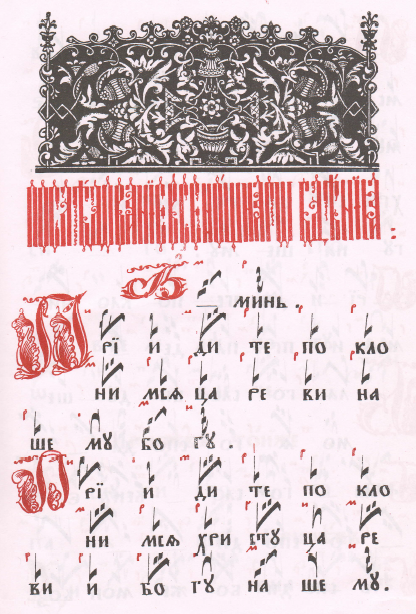 Аминь.
Прї и ди те по кло
ни мсѧ ца ре ви на
ше мꙋ бо гꙋ.
Прї и ди те по кло
ни мсѧ хри стꙋ ца ре
ви и бо гꙋ на ше мꙋ.